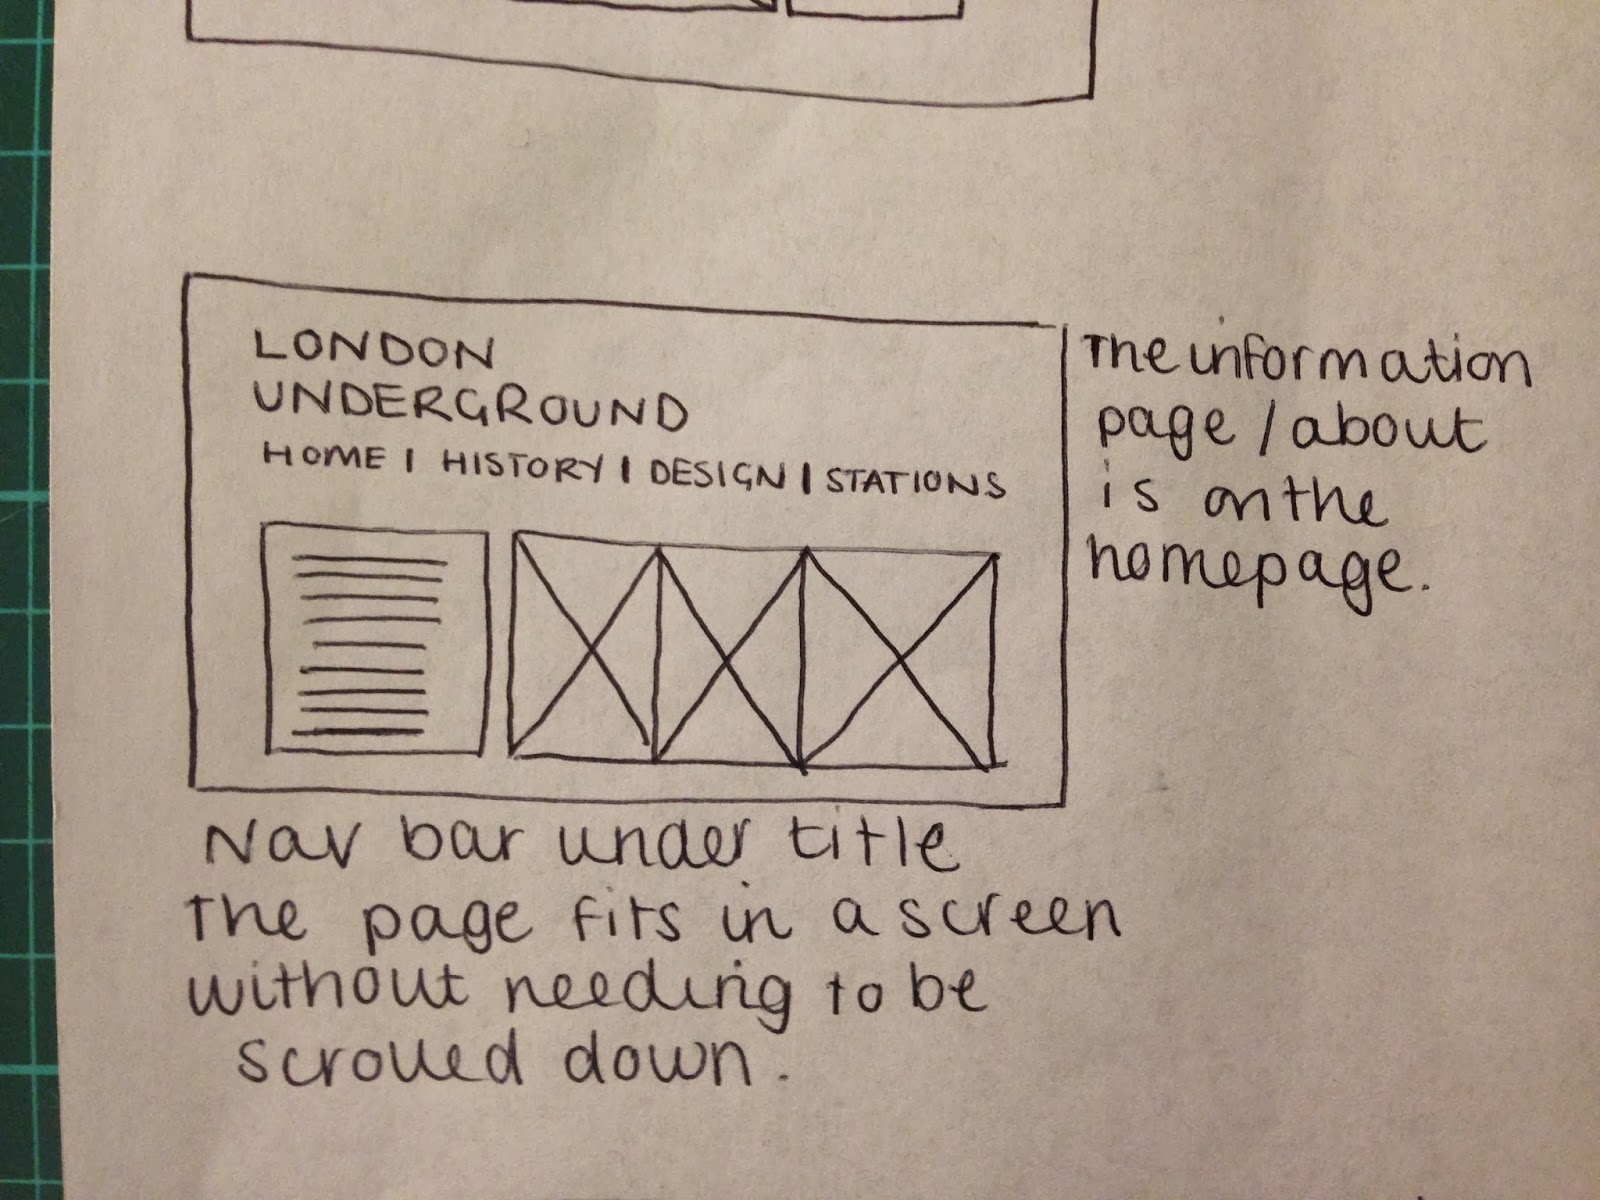 LONDON
UNDERGROUND
HOME | HISTORY | DESIGN | STATIONS
The information
page / about
is on the
homepage.
Nav bar under title
The page fits in a screen
without needing to be
scrolled down.